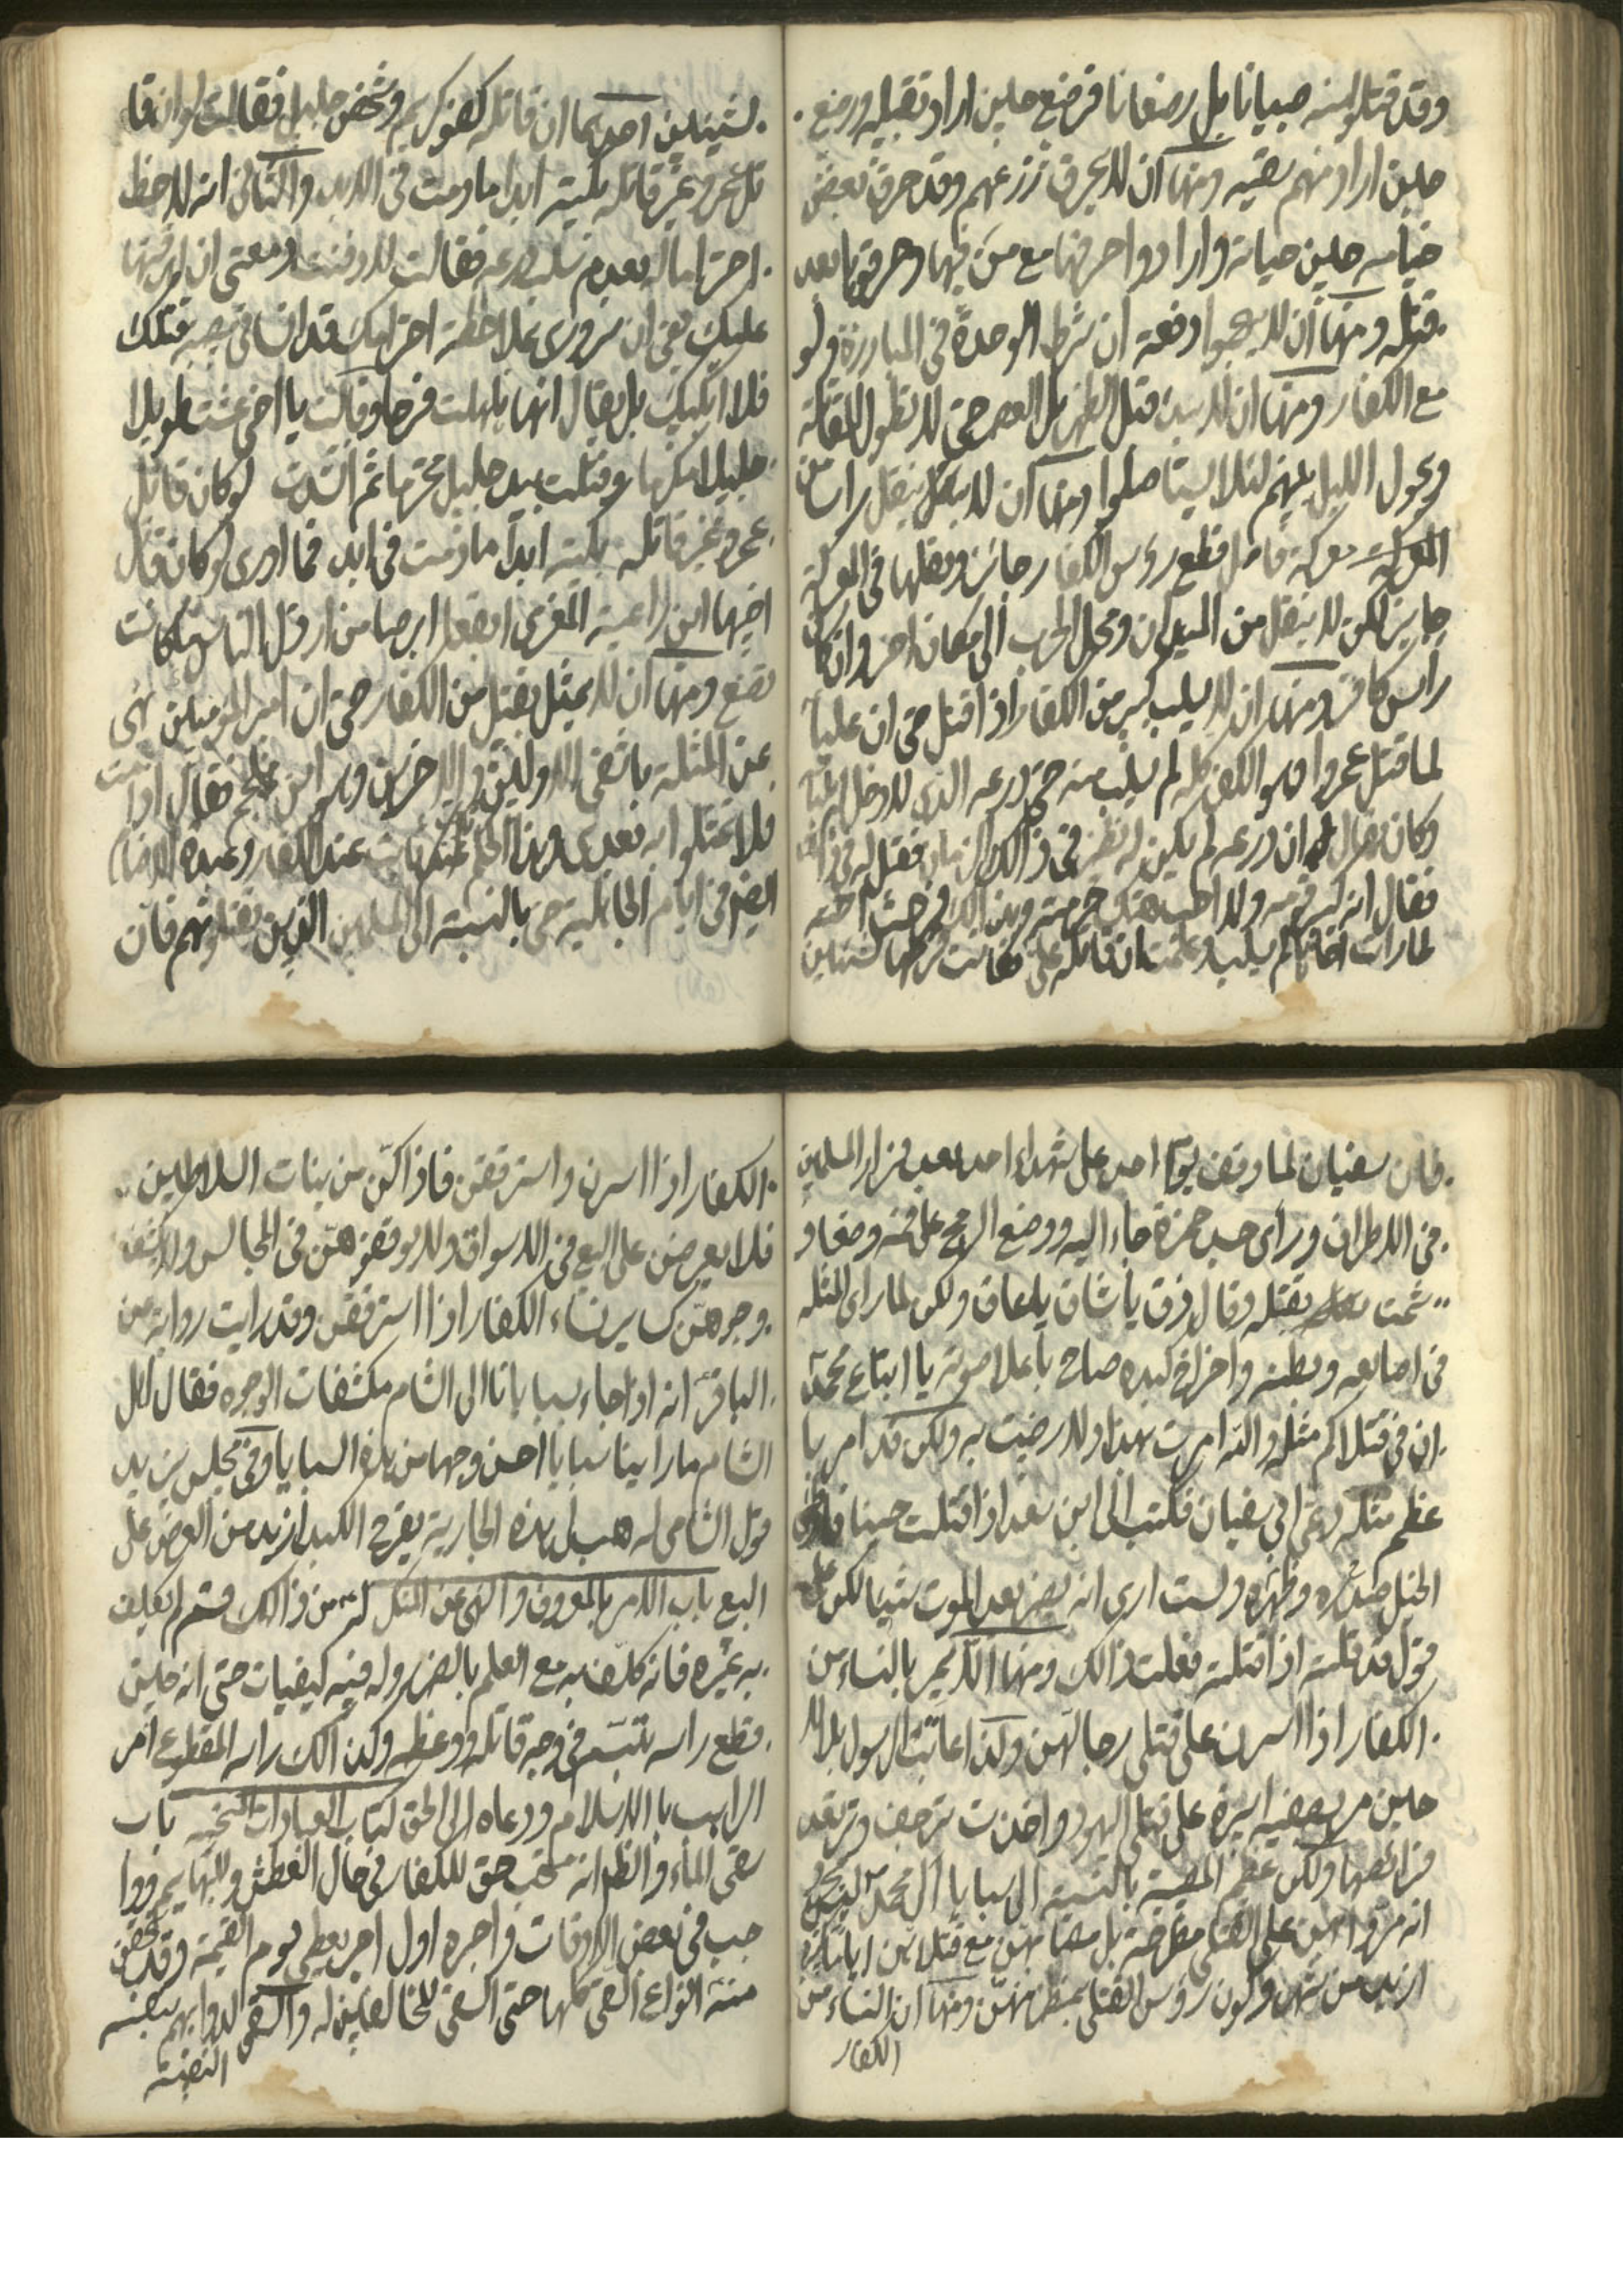 وقد قتلوا منه صبيانا بل رضعانا فرضع حين اراد تقبيله ورضع
حين اراد منهم سقيه ومنها ان لا يحرق زرعهم وقد حرق بعض
خيامه حين حياته وارادوا حرقها مع من فيها وحرقوها بعد
قتله ومنها ان لا يهجموا دفعة ان شرط الوحدة في المبارزة ولو
مع الكفار ومنها ان لا يبدء قتل الظهر بل العصر حتى لا تطول المقاتلة
ويحول الليل بينهم لئلا يستأصلوا ومنها ان لا ينقل راس من
المعركة فاصل قطع رؤس الكفار جائز ونقلها في المعركة
جايز لكن لا ينقل من الميدان ومحل الحرب الى مكان اخر وان كان
رأس كافر ومنها ان لا يسلب كبير من الكفار اذا قتل حتى ان عليا
لما قتل عمروا وهو الكفر كله لم يسلب منه حتى درعه الذي
وكان يقال ان درعه لم يكن له نظير في ذلك الزمان فقيل له في ذلك
فقال انه كبير قومه ولا احب هتك حرمته ولذلك فرحت اخته
لما رات اخاها لم يسلب وعلمت ان قاتله علي فكانت فرحتها لشيئين
لشيئين احدهما ان قاتله كفو كريم وشخص جليل فقالت لو ان قا
تل عمرو غير قاتله بكيته ابدا ما دمت في الابد والثاني انه لاحظ
احترامه بعدم سلب درعه فقالت لا رقئت دمعتي ان اهرقتها
عليك يعني ان سروري بملاحظة احترامك قد انساني مصيبة قتلك
فلا ابكيك بل يقال انها هلهلت فرحا وقالت يا اخي عشت طويلا
جليلا مكرما وقتلت بيد جليل محترما ثم انشدت لو كان قاتل
عمرو غير قاتله بكيته ابدا ما دمت في ابد فما ادري لو كان قاتل
اخيها ابن راعية المعزى ابقع ابرصا من ارذل الناس ما كانت
تصنع ومنها ان لا يمثل بقتيل من الكفار حتى ان امير المؤمنين نهى
عن المثلة باشقى الاولين والاخرين وهو ابن ملجم فقال اذا مت
فلا تمثلوا به بعدي وهذا الحكم ثابت عند الكفار وعبدة الاصنام
ايضا في ايام الجاهلية حتى بالنسبة الى المسلمين الذين يقتلونهم فان
فان سفيان لما وقف يوم احد على شهداء احد بعد فرار المسلمين
في الاطراف ورأى جسد حمزة جاء اليه ووضع الرمح على فمه وصفا و
شمت بقتله وقال ذق يا شاق يا عاق ولكن لما راى المثلة
في اصابعه وبطنه واخراج كبده صاح باعلا صوته يا اتباع محمد
ان في قتلاكم مثلة والله ما امرت بهذا ولا رضيت به ولكن قد امر با
عظم مثلة دعي ابي سفيان فكتب الى ابن سعد اذا قتلت حسينا فاوطئ
الخيل صدره وظهره ولست ارى انه يضر بعد الموت شيئا لكن على
قول قد قلته اذا قتلته فعلت ذالك ومنها ان لا يمر بالنساء من
الكفار اذا اسرن على قتلى رجالهن ولذا عاتب الرسول بلالا
حين مر بصفية اسيرة على قتلى اليهود واخذت ترجف وترتعد
فرائصها ولكن عظم المصيبة بالنسبة الى سبايا آل محمد ليس
انه مروا بهن على القتلى مطرحة بل مع قتلاهن
ازيد من شهر وكون رؤس القتلى بمنظر منهن ومنها ان النساء من
الكفار
الكفار اذا اسرن واسترققن فاذا كن من بنات السلاطين
فلا يعرضن على البيع في الاسواق ولا يوقفوهن في المجالس ولا تكشف
وجوههن كساير نساء الكفار اذا استرققن وقد رايت رواية عن
الباقر انه اذا جاءو بسبايانا الى الشام مكشفات الوجوه فقال اهل
الشام ما راينا سبايا احسن وجها من هذه السبايا وفي مجلس يزيد
قول الشامي له هب لي هذه الجارية يقرح الكبد ازيد من العرض على
البيع باب الامر بالمعروف والنهي عن المنكر له من ذالك قسم لم يكلف
به غيره فانه كلف به مع العلم بالضرر وله فيه كيفيات حتى انه حين
قطع راسه تبسم في وجه قاتله ووعظه وكذالك راسه المقطوع امر
الراهب بالاسلام ودعاه الى الحق كتاب العبادات المستحبة باب
سقى الماء والظاهر انه مستحب حق للكفار في حال العطش وللبهايم ووا
جب في بعض الاوقات واجره اول اجر يعطى يوم القيمة وقد تحقق
منه انواع السقى كلها حتى السقى لمخالفين له والسقى لدوابهم بنفسه
النفيسة